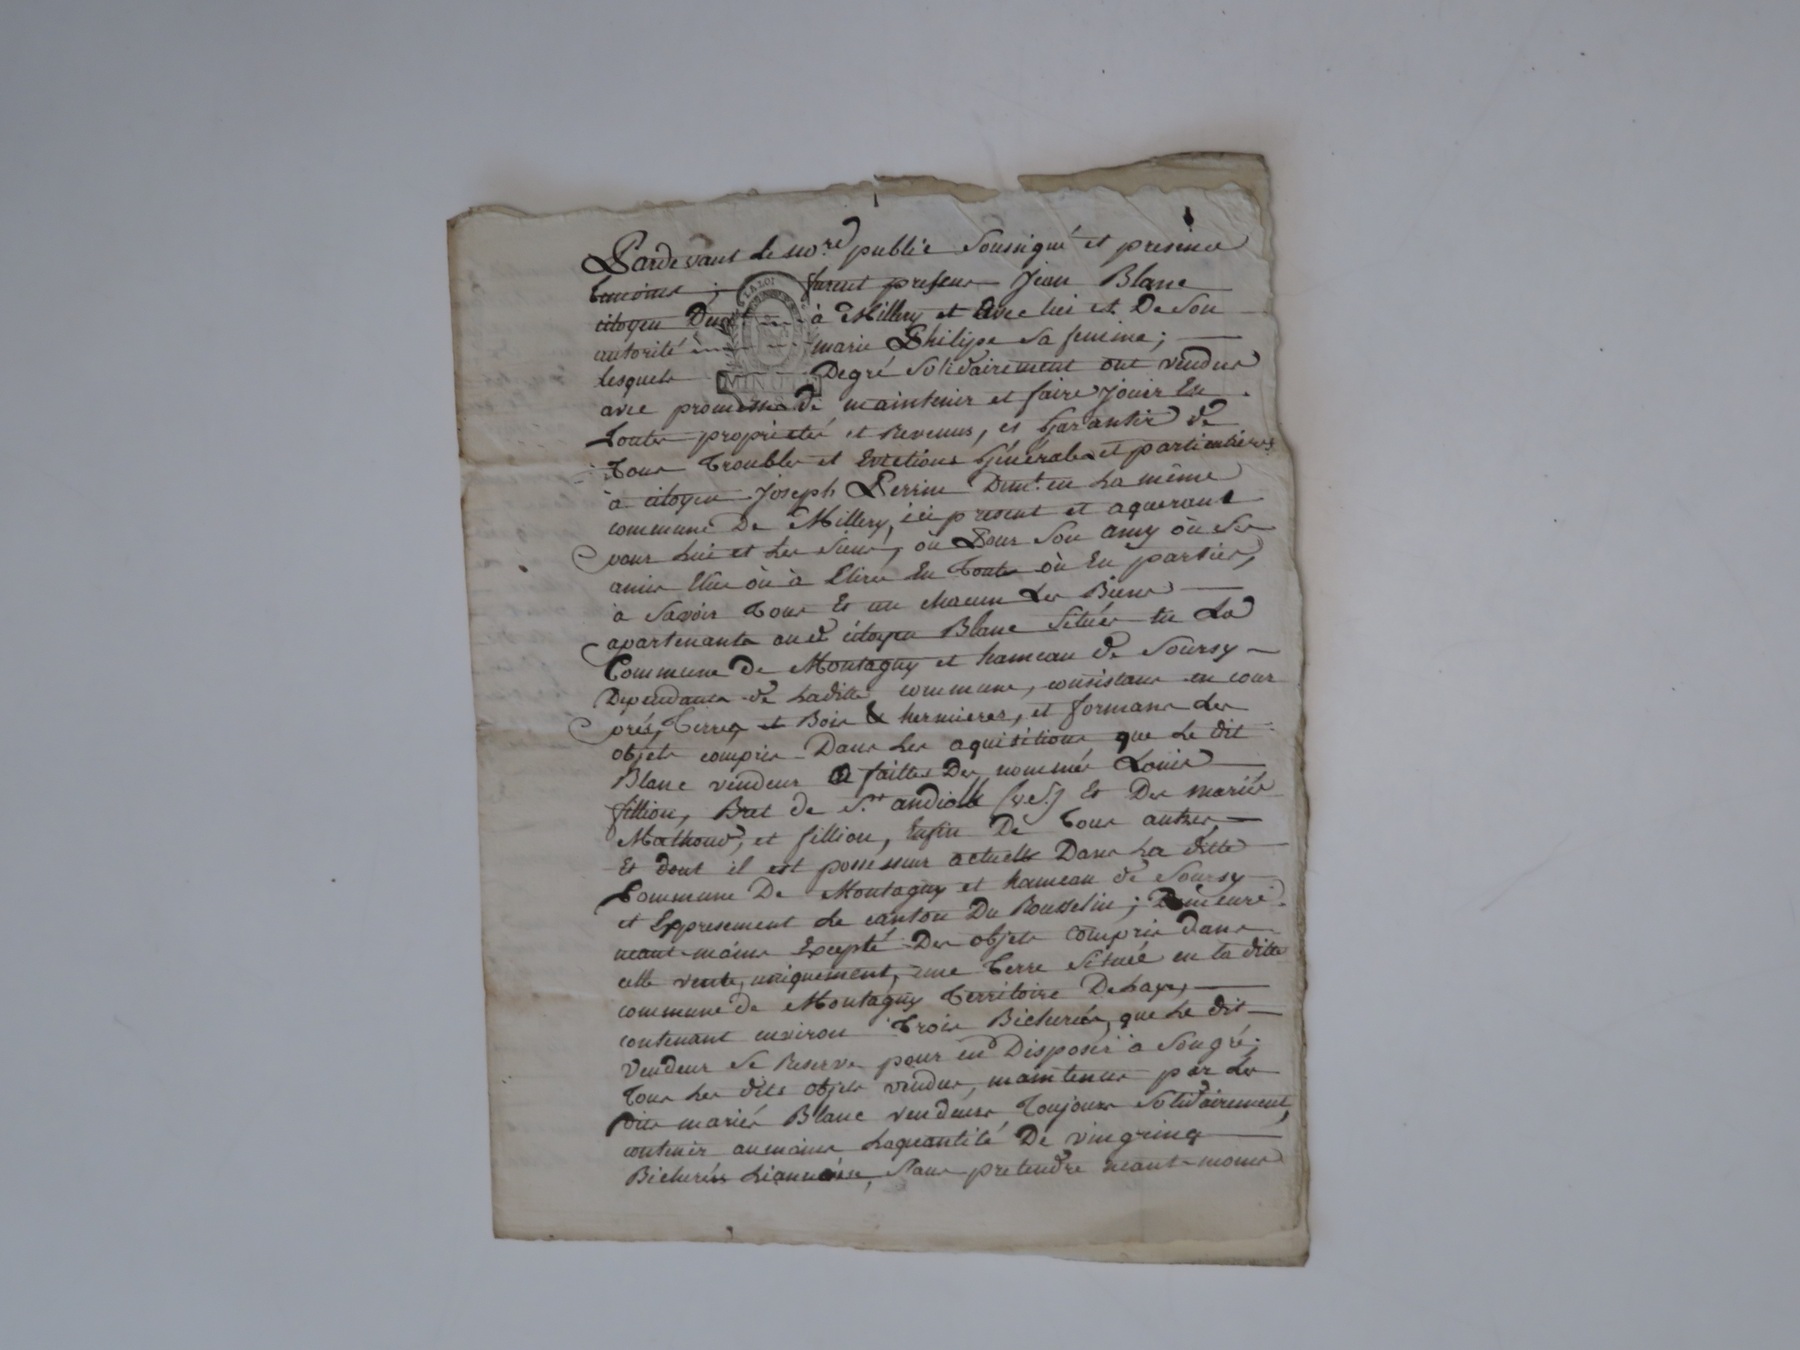 Pardevant Le no.re public Soussigné et presence
temoins ; furent presens Jean Blanc
LA LOI
citoyen Dem.t à Millery et Avec lui et De Son
autorité marie Philipe Sa femme ;
Lesquels Degré Solidairement ont vendus
MINUTE
avec promesse de maintenir et faire Jouir En
Toutes proprietés et Revenus, et Garantir de
Tous Troubles et Evictions Générales et particulières
à citoyen Joseph Perrin Dem.t en La même
commune De Millery, ici present et aquerant
pour Lui et Les Siens, où Pour Son amy où Ses
amis Elus où à Elire En Toutes où En parties,
à Savoir Tous Et un chacun Les Biens
apartenants au d citoyen Blanc Situés En La
Commune de Montagny et hameau de Soursy
Dependants de Laditte commune, consistans en cour
prés, Terres, et Bois & hermieres, et formans Les
objets compris Dans Les aquisitions que Le dit
Blanc vendeur A faittes Des nommés Louis
fillion, Bret de S.t andiolle (v.S.) Et Des mariés
Mathoud, et fillion, Enfin De Tous autres,
Et dont il est possesseur actuell Dans La ditte
Commune De Montagny et hameau de Soursy
et Expresement Le canton Du Rousselin ; Demeure
neant-moins Excepté Des objets Compris dans
cette vente, uniquement, une Terre Située en la ditte
commune de Montagny Territoire De Layes,
contenant environ Trois Bicherées, que Le dit
Vendeur Se Reserve pour en Disposer à Songré ;
Tous Les dits objets vendus, maintenus par Les
dits mariés Blanc vendeurs Toujours Solidairement,
contenir aumoins Laquantité De vingcinq
Bicherées Lionnaises, Sans pretendre neant-moins